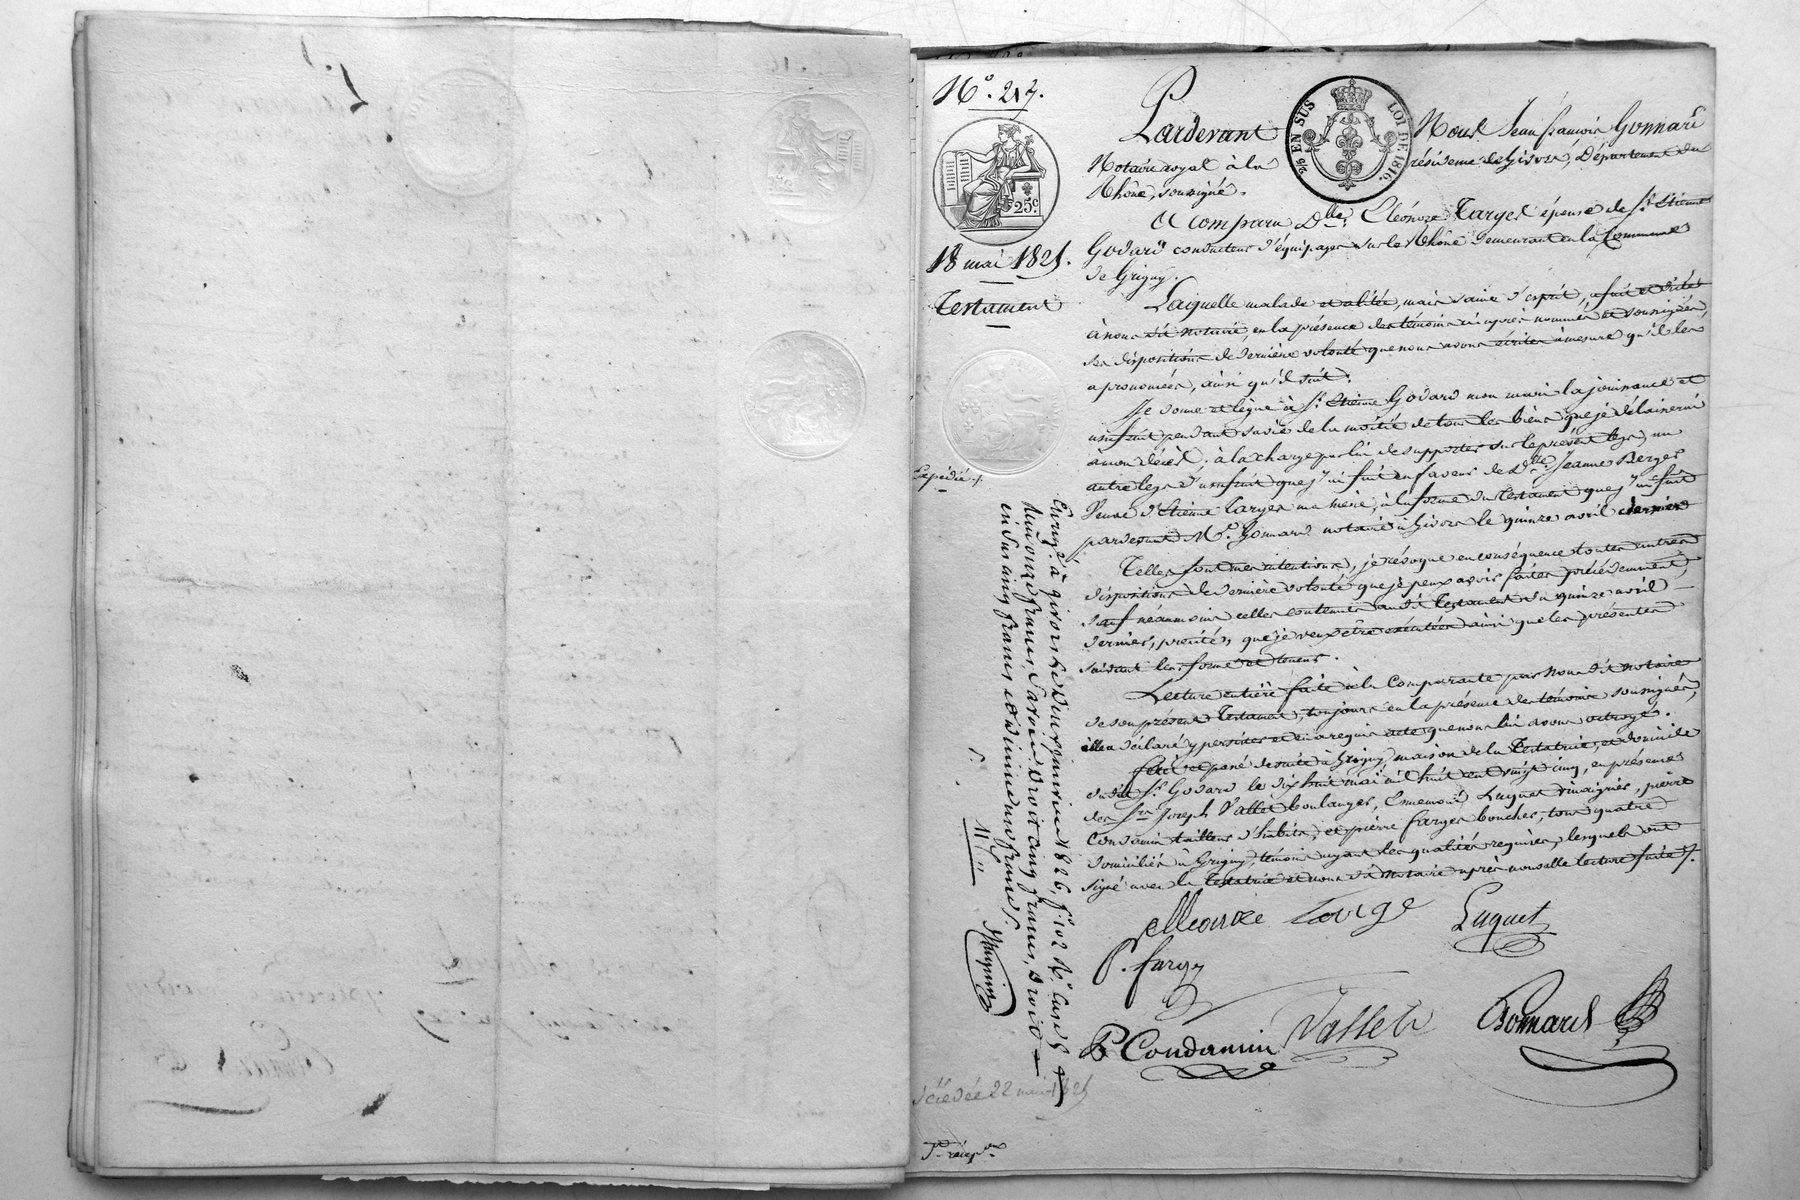 N.° 217.
25.c
18 mai 1825.
Testament
Expédié ./.
2/6 EN SUS LOI DE 1816.
Pardevant Nous Jean françois Gonnard
Notaire royal à la résidence de Givors, Département du
Rhône, soussigné.
A Comparu D.lle Eléonore Farges épouse de S.r Etienne
Godard conducteur d'équipages sur le Rhône demeurant en la Commune
de Grigny.
Laquelle malade et alitée, mais saine d'esprit, a fait et dicté
à nous dit notaire, en la présence des témoins ci après nommés et soussignés,
ses dispositions de dernière volonté que nous avons écrites à mesure qu'il les
a prononcées, ainsi qu'il suit.
Je donne et lègue à S.r Etienne Godard mon mari la jouissance et
usufruit pendant sa vie de la moitié de tous les biens que je délaisserai
à mon décès; à la charge par lui de supporter sur le présent legs, un
autre legs d'usufruit que j'ai fait en faveur de D.lle Jeanne Berger
Veuve d'Etienne Farges ma mère, à la forme du testament que j'ai fait
pardevant M.e Gonnard notaire à Givors le quinze avril dernier
Telles sont mes intentions, je révoque en conséquence toutes autres
dispositions de dernière volonté que je peux avoir faites précédemment,
sauf néanmoins celles contenues audit testament du quinze avril
dernier, précité, que je veux être exécutées ainsi que les présentes
suivant leur forme et teneur.
Lecture entière faite à la Comparante par Nous dit notaire
de son présent Testament, toujours en la présence des témoins soussignés,
elle a déclaré y persister et en a requis acte que nous lui avons octroyé.
fait et passé de suite à Grigny, maison de la Testatrice, et domicile
dudit S.r Godard le dix huit mai mil huit cent vingt cinq, en présence
des S.rs Joseph Vallet boulanger, Ennemond Luquet vinaigrier, pierre
Condamin tailleur d'habits, et pierre farges boucher, tous quatre
domiciliés à Grigny, témoins ayant les qualités requises, lesquels ont
signé avec la testatrice et nous dit notaire après nouvelle lecture faite ./.
farge Luquet
P. farge
P Condamin Vallet Gonnard
Enreg.é à givors le vingt janvier 1826, f.o 102 R.o Case 5
Reçu cinq francs, droit
en sus cinq francs et dixième un franc.
11 "
décédée 22 mai 1825